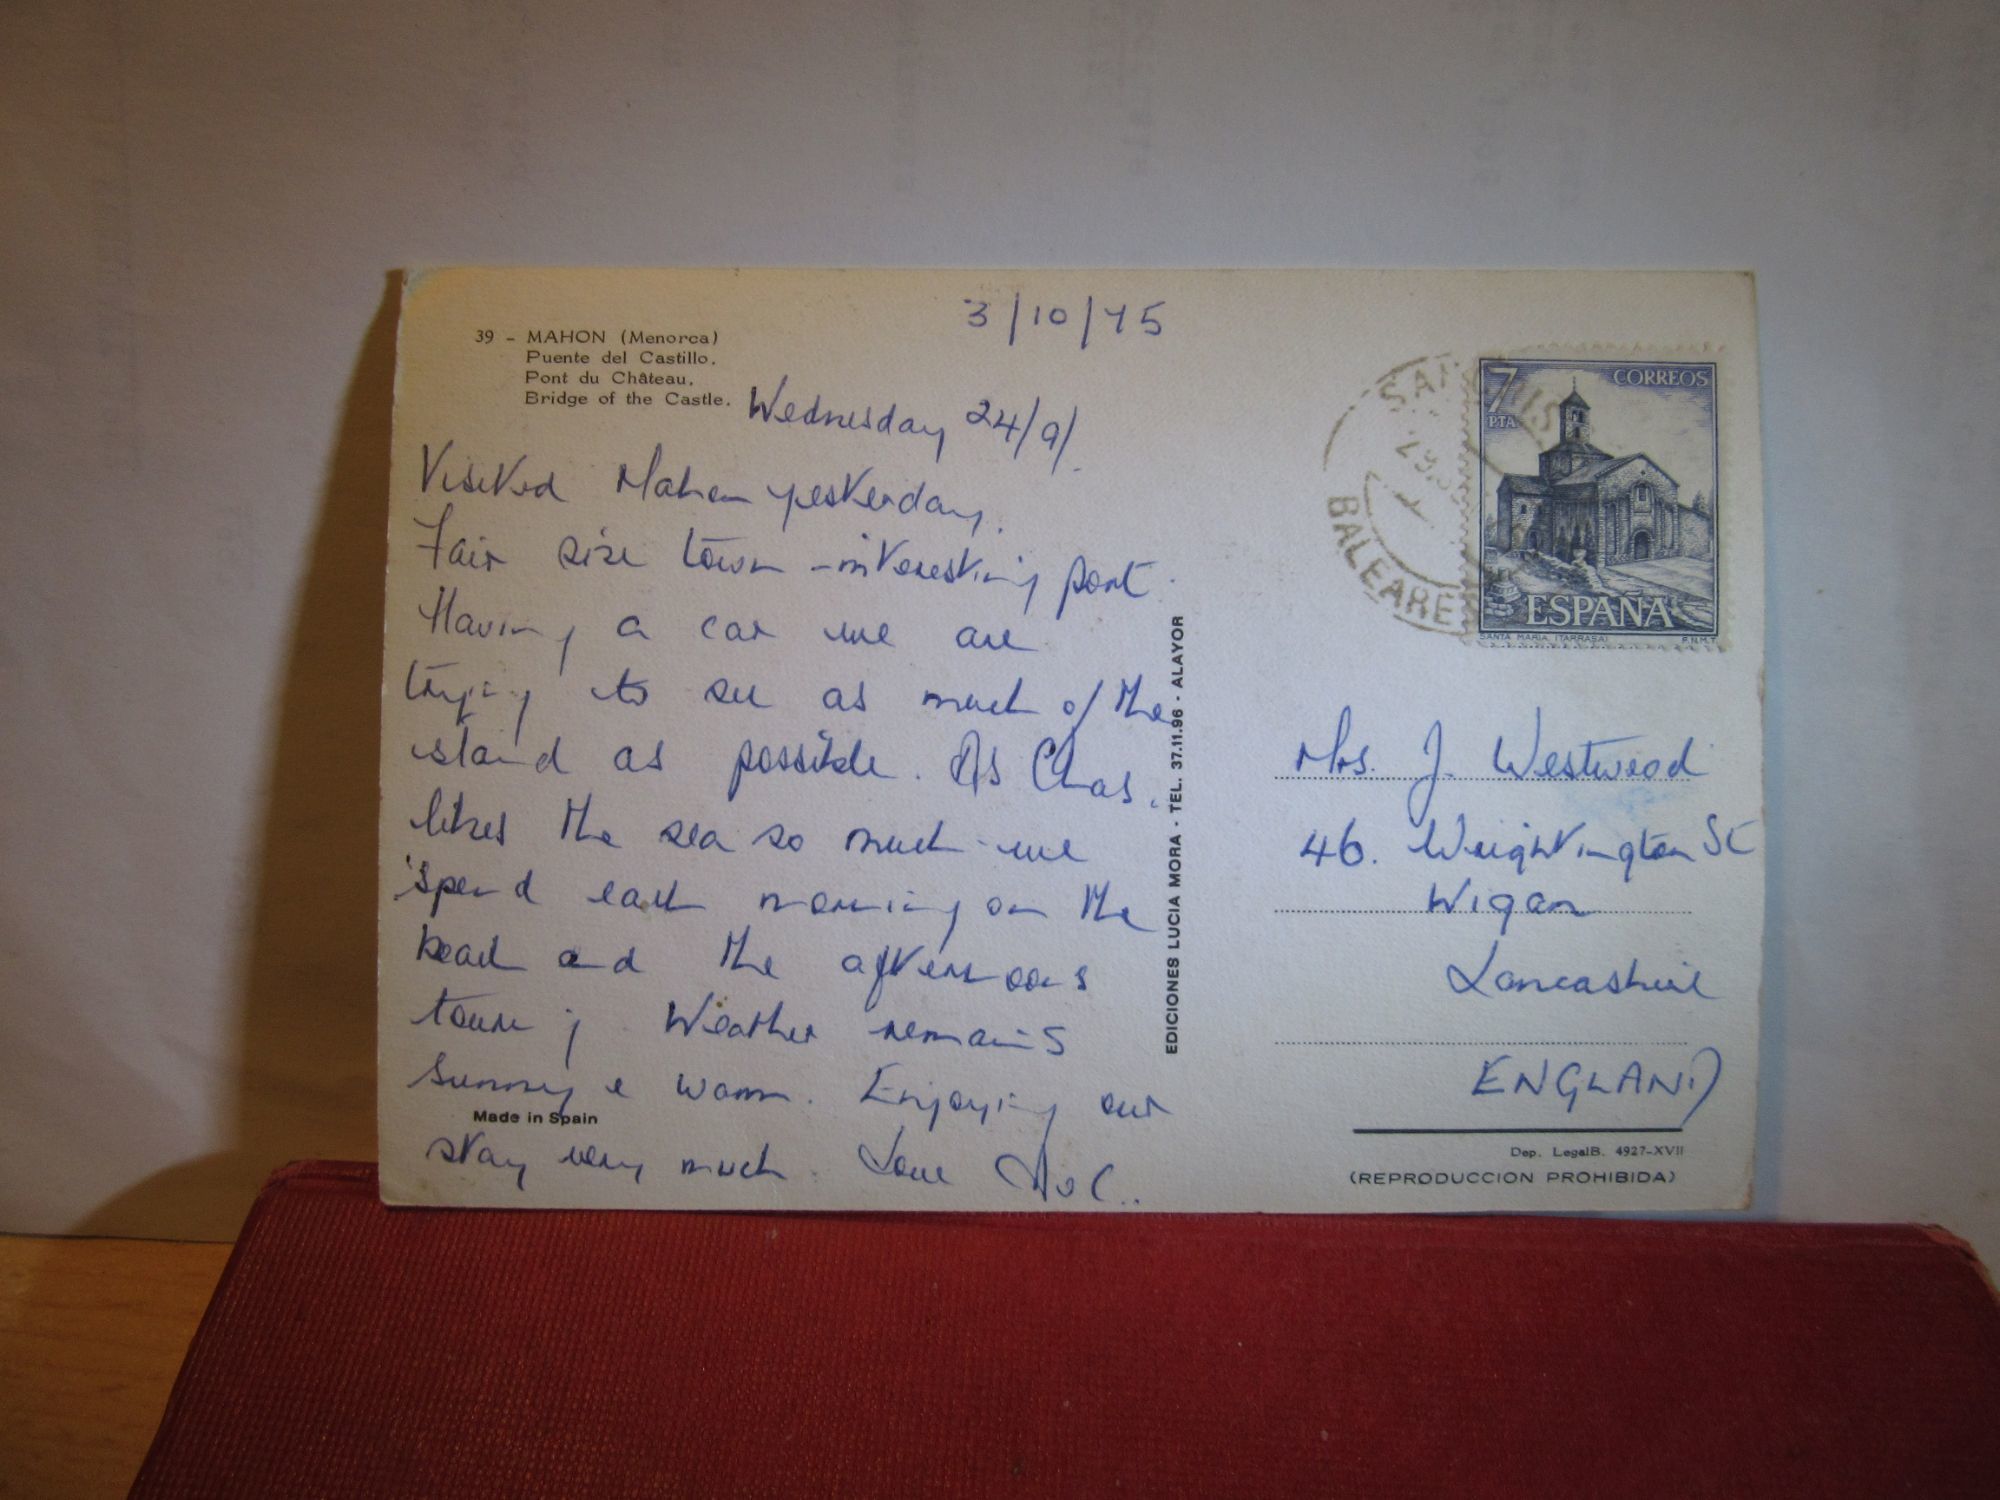 3/10/75
39 - MAHON (Menorca)
Puente del Castillo.
Pont du Château.
Bridge of the Castle.
Wednesday 24/9/.
Visited Mahon yesterday.
Fair size town - interesting port.
Having a car we are
trying to see as much of the
island as possible. As Chas.
likes the sea so much we
spend each morning on the
beach and the afternoons
touring. Weather remains
sunny & warm. Enjoying our
stay very much. Love
Made in Spain
EDICIONES LUCIA MORA - TEL. 37.11.96 - ALAYOR
BALEARES
7 PTA CORREOS
ESPAÑA
SANTA MARIA (TARRASA) F.N.M.T.
Mrs. J. Westwood
46. Wrightington St
Wigan
Lancashire
ENGLAND
Dep. Legal B. 4927-XVII
(REPRODUCCION PROHIBIDA)